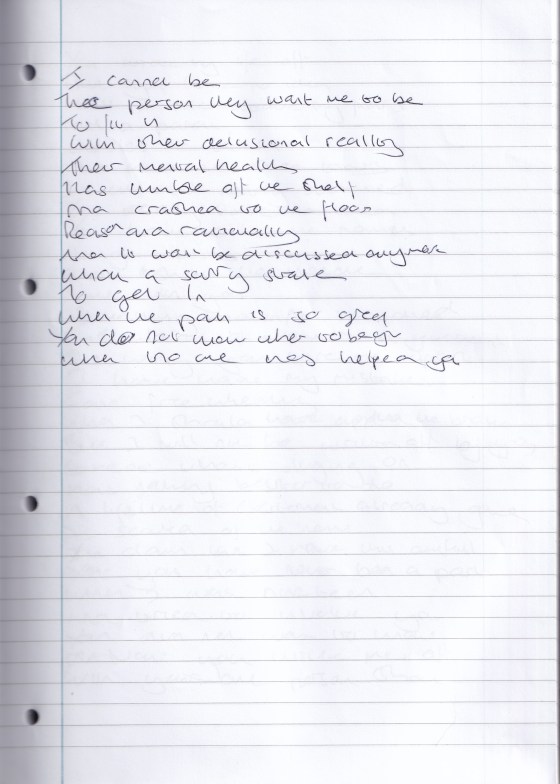 I cannot be
The person they want me to be
To fit in
With their delusional reality
Their mental health
Has tumble off the shelf
And crashed to the floor
Reason and rationality
And it won't be discussed anymore
What a sorry state
To get in
When the pain is so great
You do not know where to begin
When no one has helped you